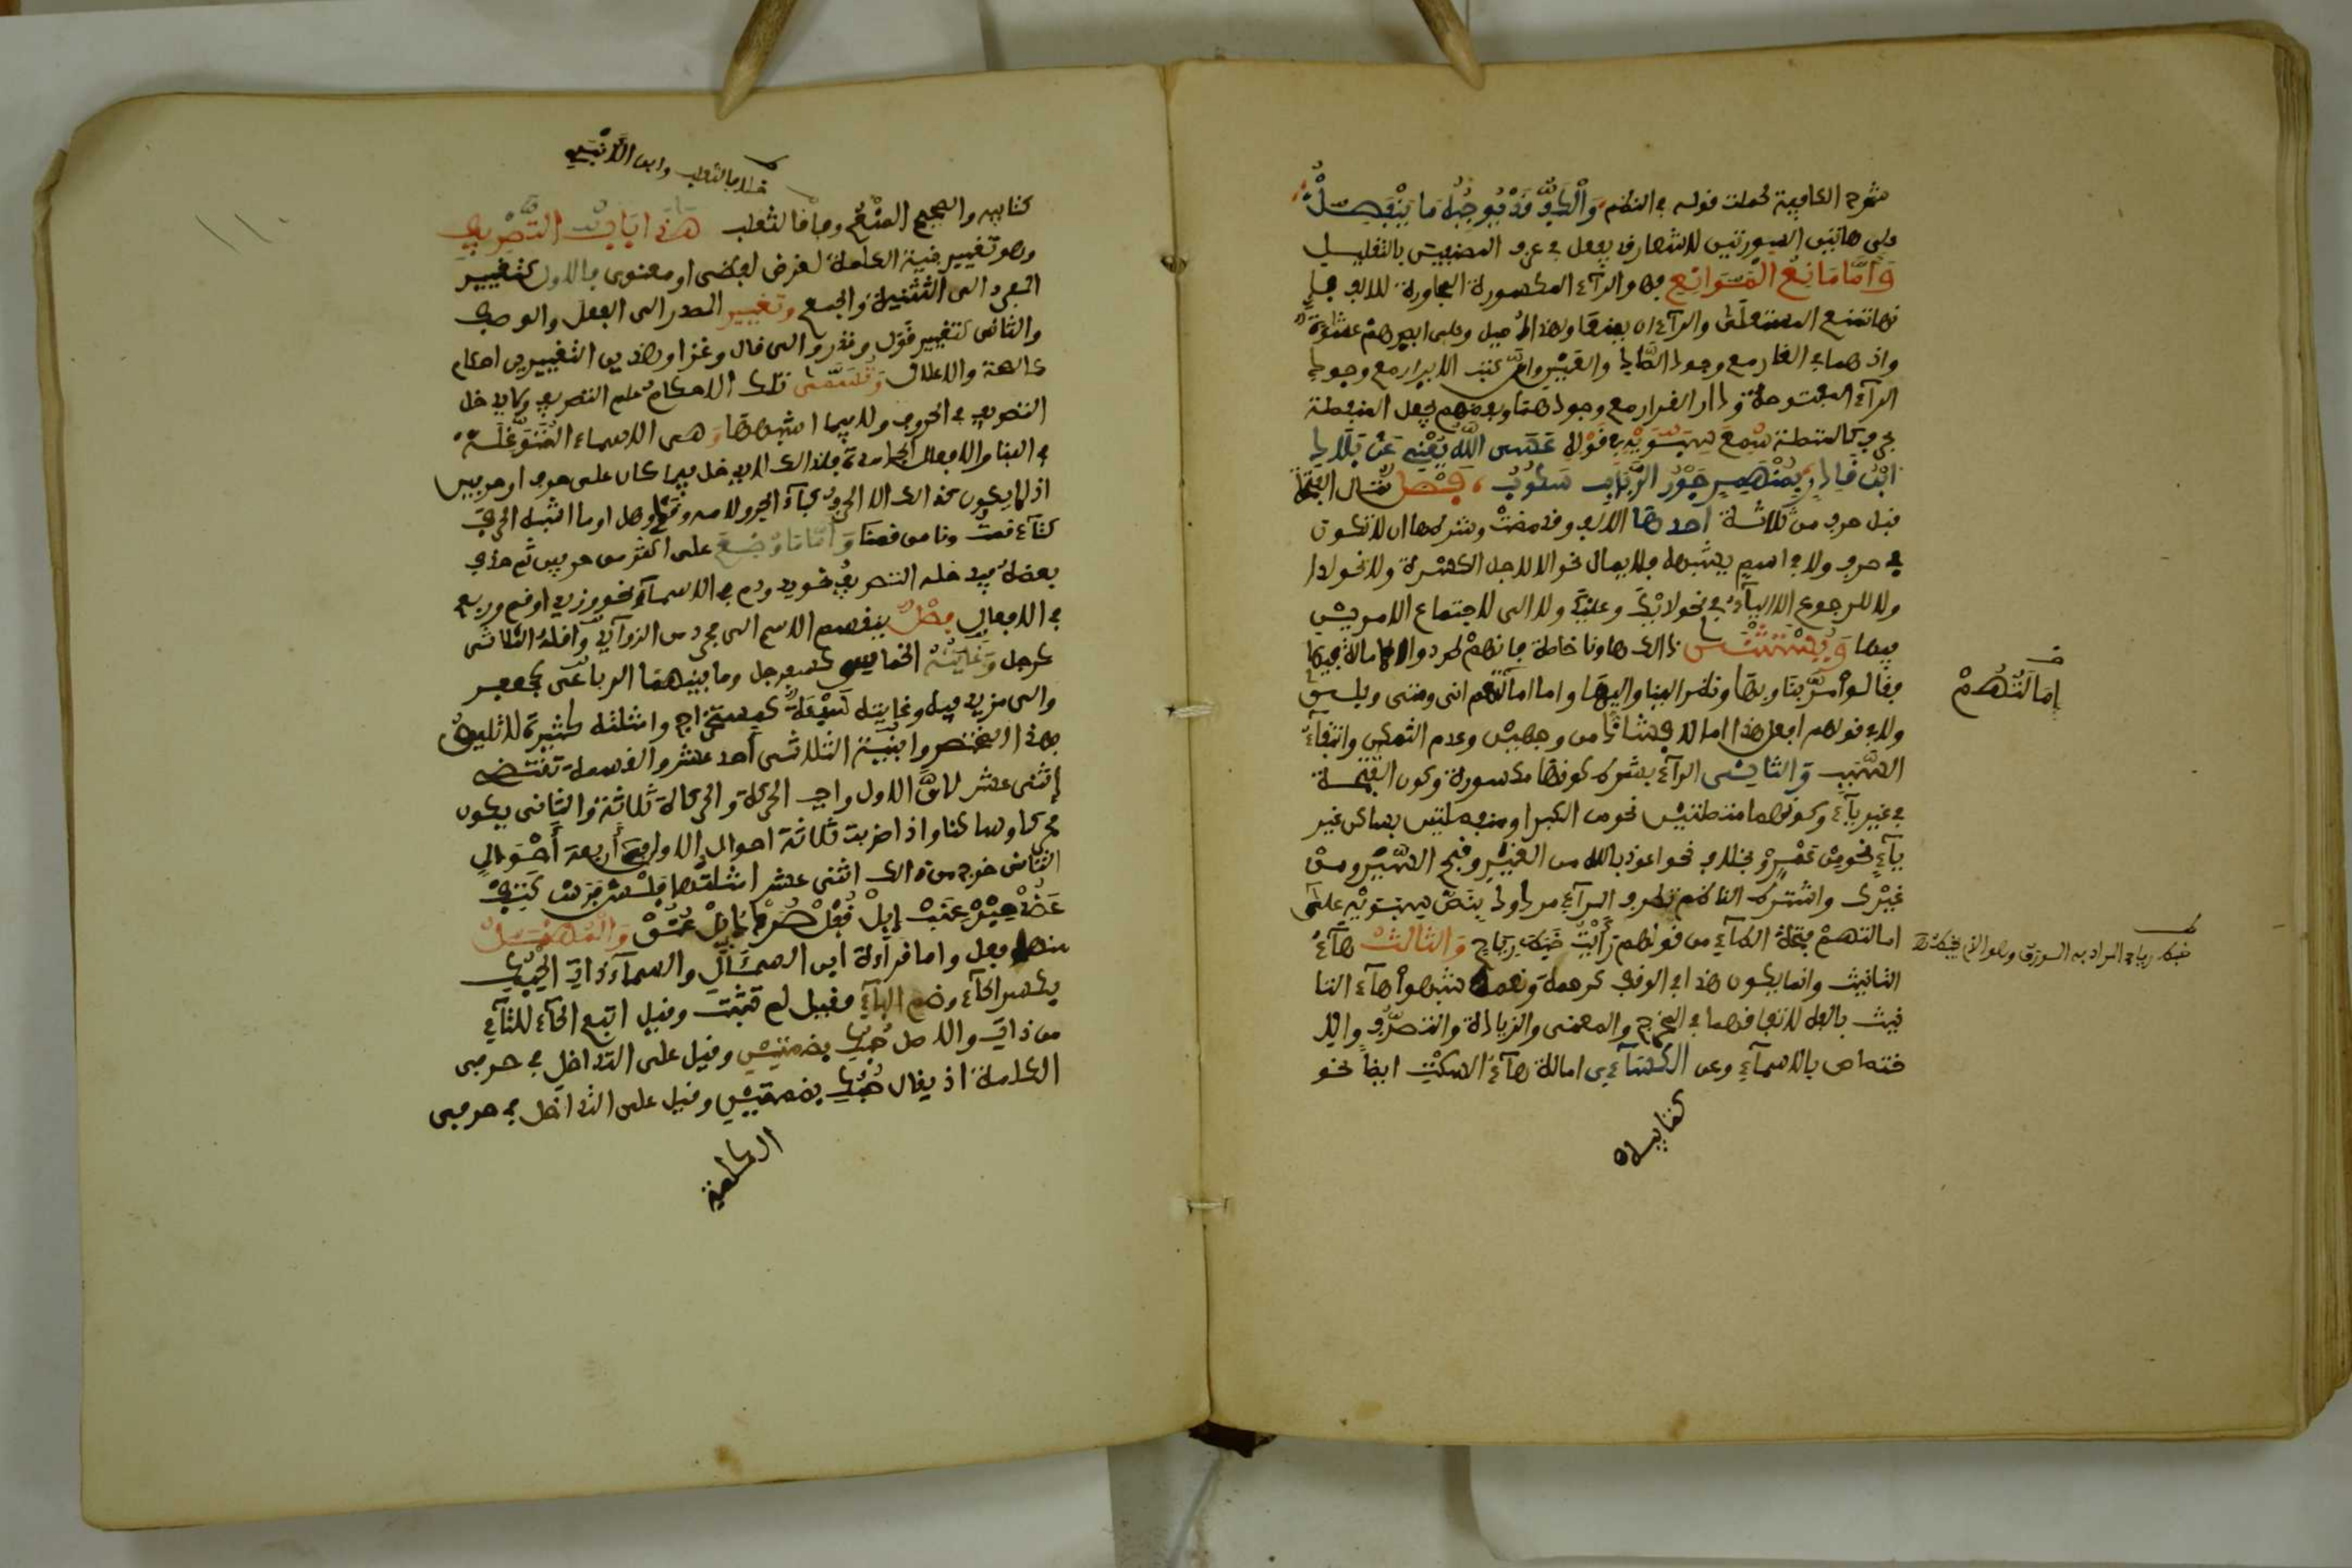 شرح الكافية فحملت قوله في النظم وَالْكَفُّ قَدْ يُوجِبُهُ مَا يَنْفَصِلْ
على هاتين الصورتين للاشعار قد يفعل في عرف المصنفين بالتقليل
وَأَمَّا مَانِعُ الْمَوَانِعِ فهو الرآء المكسورة المجاورة للالف فإ
نها تمنع المستعلى والرآء ان يمنعا ولهذا اميل وعلى ابصرهم غشاوة
واذ هما في الغار مع وجود الصاد والغين وإن كتب الابرار مع وجود
الرآء المفتوحة ودار القرار مع وجودهما وبعضهم يجعل المنفصلة
بحرف كالمتصلة سُمِعَ سيبويه في قوله عَسَى اللَّهُ يُغْنِي عَنْ بِلَادِ
ابْنِ قَادِرٍ بِمُنْهَمِرٍ جَوْنِ الرَّبَابِ سَكُوبِ فَصْلٌ تمال الفتحة
قبل حرف من ثلاثة أحدها الالف وقد مضت وشرطها ان لا تكون
في حرف ولا في اسم يشبهه فلا يمال نحو الا لاجل الكسرة ولا نحو
ولا للرجوع الى اليآء في نحو لديك وعليك ولا الى لاجتماع الامرين
فيها وَيُسْتَثْنَى من ذلك ها ونا خاصة فإنهم طردوا الامالة فيهما
فقالوا مرّ بنا وبها ونظر الينا واليها واما امالتهم انى ومتى وبلى
ولا في قولهم افعل هذا امالا فشاذ من وجهين وعدم التمكن وانتفاء
السبب وَالثاني الرآء بشرط كونها مكسورة وكون الفتحة
في غير يآء وكونهما متصلتين نحو من الكبر او منفصلتين بساكن غير
يآء نحو من عَمْرٍو بخلاف نحو اعوذ بالله من الغير وقبح السير ومن
غيرك واشترط الناظم تطرف الرآء مردود بنص سيبويه على
امالتهم فتحة الطآء من قولهم رَأَيْتُ خَبَطَ رِيَاحٍ وَالثالث هآء
التانيث وانما يكون هذا في الوقف كرحمة ونعمة شبهوا هآء التا
نيث بالالف لاتفاقهما في المخرج والمعنى والزيادة والتطرف والا
ختصاص بالاسمآء وعن الكسآءي امالة هآء السكت ايضا نحو
كتابيه
إِمَالَتُهُمْ
خبط رياح المراد به الورق وهو الذي يخبط
كتابيه والصحيح المنع وفاقا لثعلب هَذَا بَابُ التَّصْرِيفِ
خلافا لثعلب وابن الأنباري
وهو تغيير بنية الكلمة لغرض لفظي او معنوي فالاول كتغيير
المفرد الى التثنية والجمع وتغيير المصدر الى الفعل والوصف
والثاني كتغيير قَوَلَ وغزو الى قال وغزا ولهذين التغييرين احكام
كالصحة والاعلال وَتُسَمَّى تلك الاحكام علم التصريف ولا يدخل
التصريف في الحروف ولا فيما اشبهها وَهي الاسماء المُتَوَغِّلَة
في البنا والافعال الجامدة فلذلك لا يدخل فيما كان على حرف او حرفين
اذ لا يكون كذلك الا الحرف كبآء الجر ولامه وقد وهل او ما اشبه الحرف
كتآء قمت ونا من قمنا وَأَمَّا مَا وُضِعَ على اكثر من حرفين ثم حذف
بعضه فيدخله التصريف نحو يد ودم في الاسمآء ونحو زيد او قم وربع
في الافعال فَصْلٌ ينقسم الاسم الى مجرد من الزوآئد وأقله الثلاثي
كرجل وَغَايَتُهُ الخماسي كسفرجل وما بينهما الرباعي كجعفر
والى مزيد فيه وغايته سَبْعَةٌ كاستخراج وامثلته كثيرة لا تليق
بهذا المختصر وابنية الثلاثي أحد عشر والقسمة تقتضي
اثني عشر لانَّ الاول واجب الحركة والحركة ثلاثة والثاني يكون
محركا وساكنا واذا ضربت ثلاثة احوال الاول في أربعة أَحْوَالِ
الثاني خرج من ذلك اثنى عشر امثلتها فَلْسٌ فَرَسٌ كَتِفٌ
عَضُدٌ حِبْرٌ عِنَبٌ إِبِلٌ قُفْلٌ صُرَدٌ دُئِلٌ عُنُقٌ وَالْمُهْمَلُ
منها فِعُل واما قرآءة ابي السمّال والسمآء ذات الحِبُكِ
بكسر الحآء وضم البآء فقيل لم تثبت وقيل اتبع الحآء للتآء
من ذات والاصل حُبُك بضمتين وقيل على التداخل في حرفي
الكلمة اذ يقال حُبُك بضمتين وقيل على التداخل في حرفي
الكلمة